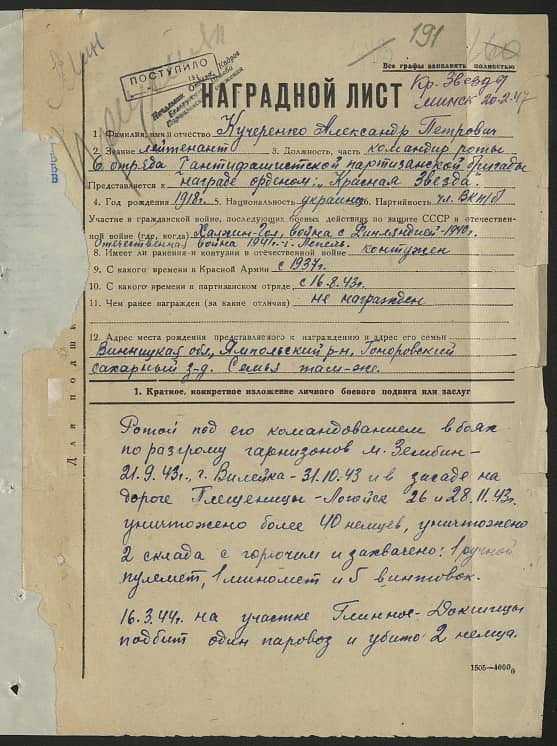 191
Все графы заполнять полностью
ПОСТУПИЛО
Кр. Звезда
Минск 20.2.47
НАГРАДНОЙ ЛИСТ
1. Фамилия, имя и отчество Кучеренко Александр Петрович
2. Звание лейтенант 3. Должность, часть командир роты
6 отряда 1 антифашистской партизанской бригады
Представляется к награде орденом „Красная звезда".
4. Год рождения 1918 г. 5. Национальность украинец 6. Партийность чл. ВКП/б
Участие в гражданской войне, последующих боевых действиях по защите СССР и отечествен-
ной войне (где, когда) Халхин-Гол, война с Финляндией-1940г.
Отечественная война 1941г. г. Лепель.
8. Имеет ли ранения и контузии в отечественной войне контужен
9. С какого времени в Красной Армии с 1937г.
10. С какого времени в партизанском отряде с 16.8.43г.
11. Чем ранее награжден (за какие отличия) не награжден
12. Адрес места рождения представляемого к награждению и адрес его семьи
Винницкая обл, Ямпольский р-н, Гоноровский
сахарный з-д. Семья там-же.
1. Краткое, конкретное изложение личного боевого подвига или заслуг
Ротой под его командованием в боях
по разгрому гарнизонов м. Зембин-
21.9.43г., г. Вилейка-31.10.43 и в засаде на
дороге Плещеницы-Логойск 26 и 28.11.43г.
уничтожено более 40 немцев, уничтожено
2 склада с горючим и захвачено: 1 ручной
пулемет, 1 миномет и 5 винтовок.
16.3.44г. на участке Глинное-Докшицы
подбит один паровоз и убито 2 немца.
1505—4000
Для подши